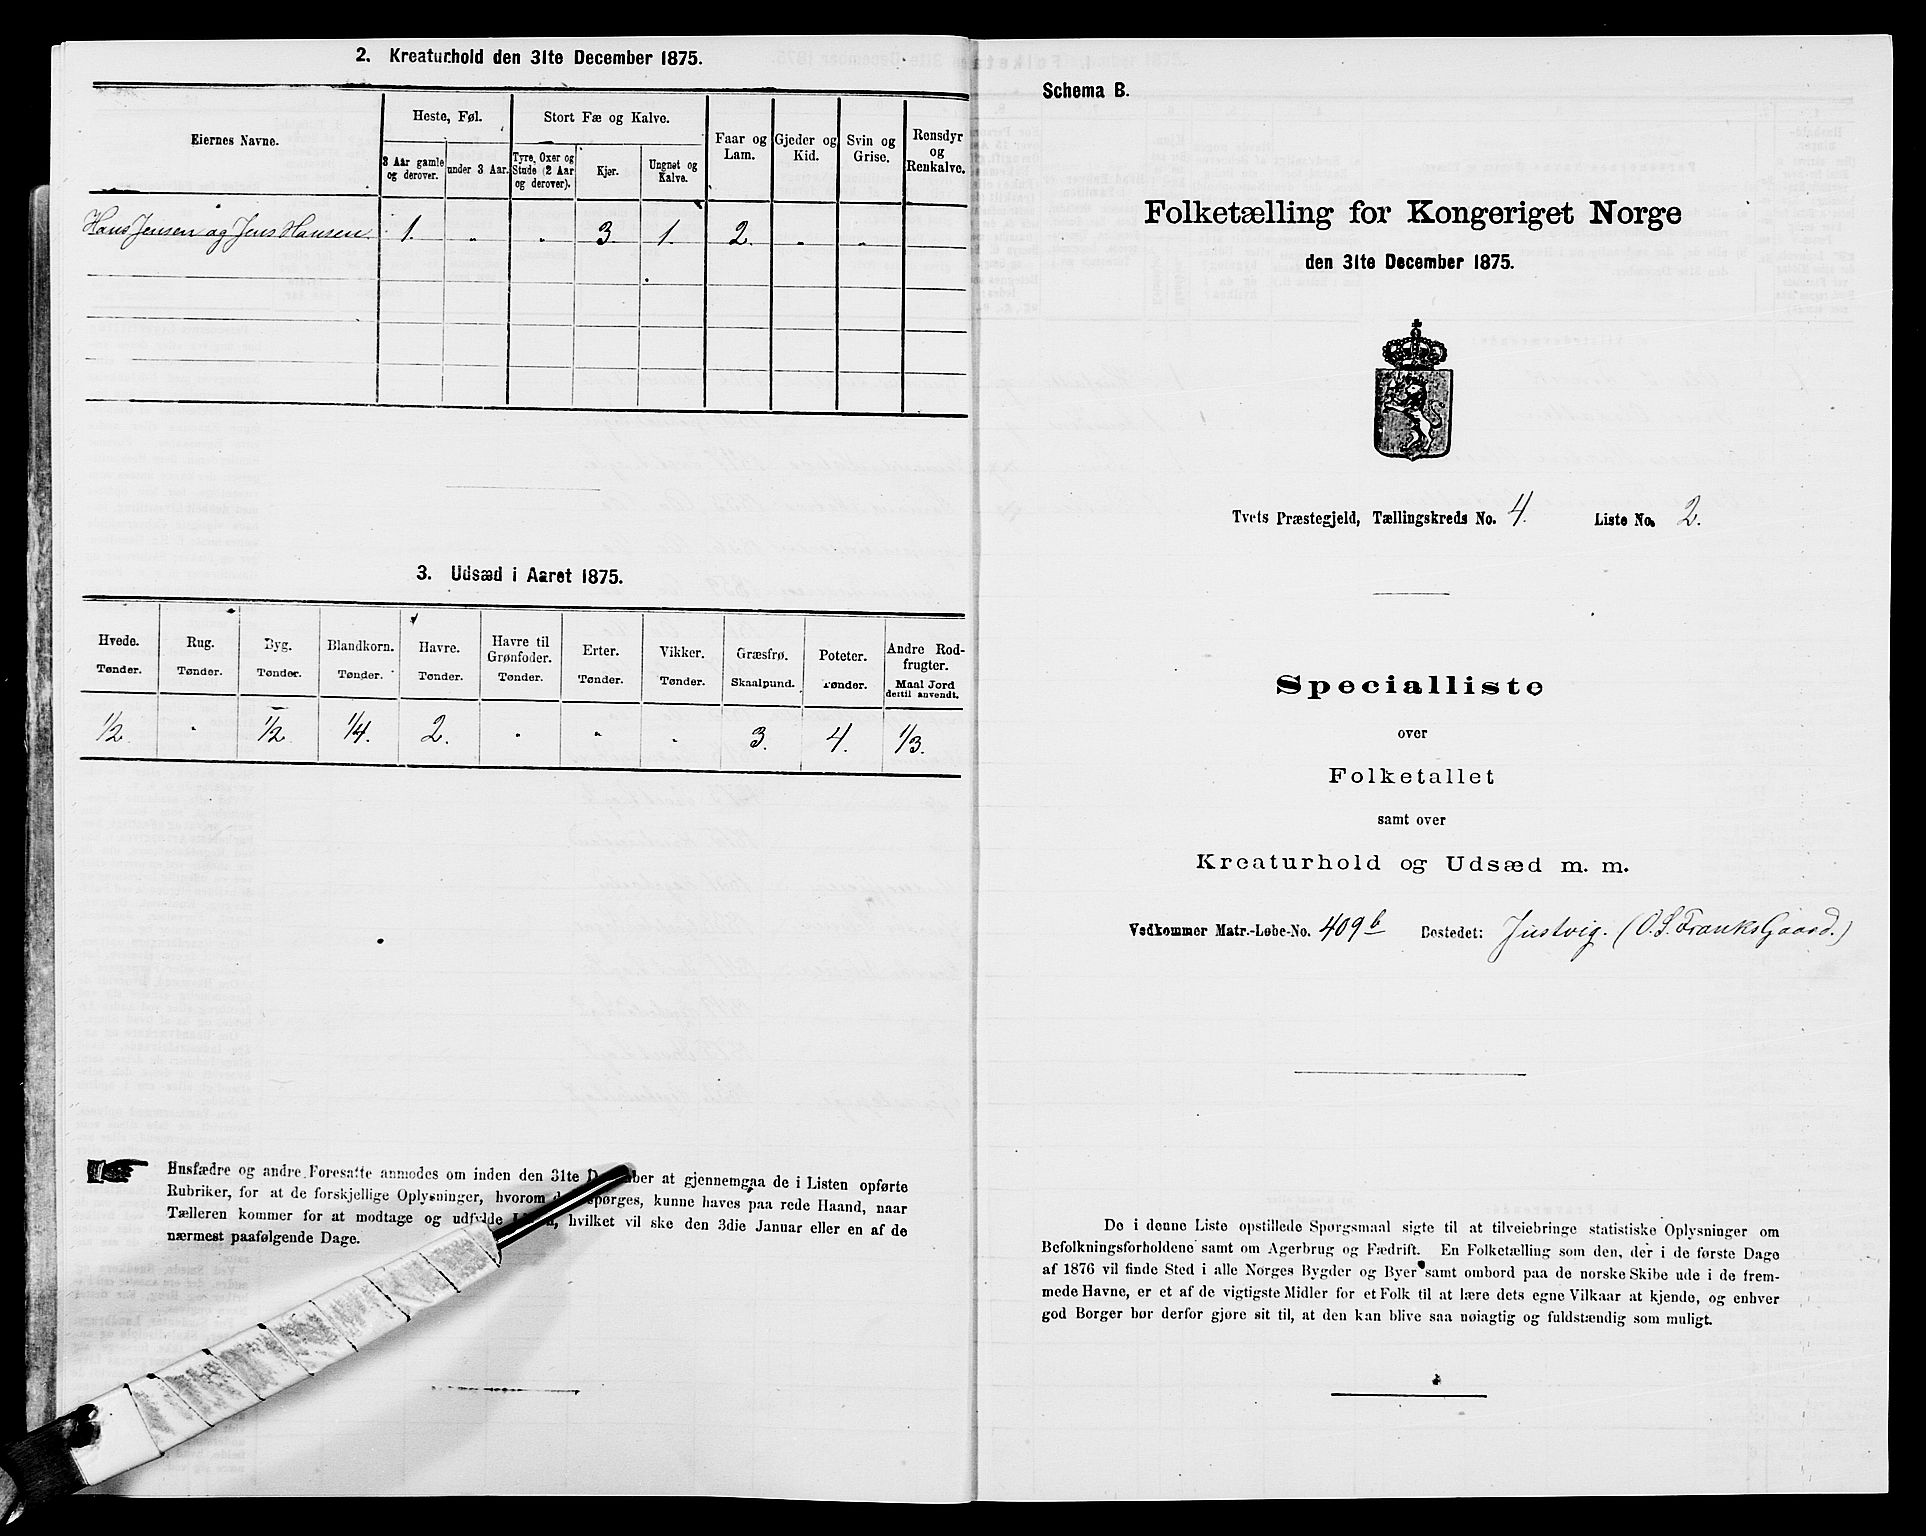 2. Kreaturhold den 31te December 1875.
Eiernes Navne.
Heste, Føl.
3 Aar gamle og derover.
under 3 Aar.
Stort Fæ og Kalve.
Tyre, Oxer og Stude (2 Aar og derover).
Kjør.
Ungnøt og Kalve.
Faar og Lam.
Gjeder og Kid.
Svin og Grise.
Rensdyr og Renkalve.
Hans Jensen og Jens Hansen. 1. " " 3 1. 2. " "
3. Udsæd i Aaret 1875.
Hvede. Rug. Byg. Blandkorn. Havre. Havre til Grønfoder. Erter. Vikker. Græsfrø. Poteter. Andre Rodfrugter.
Tønder. Tønder. Tønder. Tønder. Tønder. Tønder. Tønder. Tønder. Skaalpund. Tønder. Maal Jord dertil anvendt.
1/2 " 1/2 1/4. 2. " " " 3. 4. 1/3.
Husfædre og andre Foresatte anmodes om inden den 31te December at gjennemgaa de i Listen opførte
Rubriker, for at de forskjellige Oplysninger, hvorom spørges, kunne haves paa rede Haand, naar
Tælleren kommer for at modtage og udfylde hvilket vil ske den 3die Januar eller en af de
nærmest paafølgende Dage.
Schema B.
Folketælling for Kongeriget Norge
den 31te December 1875.
Tvets Præstegjeld, Tællingskreds No. 4. Liste No. 2.
Specialliste
over
Folketallet
samt over
Kreaturhold og Udsæd m. m.
Vedkommer Matr.-Løbe-No. 409b Bostedet: Justvig. (O. S. Franks Gaard.)
De i denne Liste opstillede Spørgsmaal sigte til at tilveiebringe statistiske Oplysninger om
Befolkningsforholdene samt om Agerbrug og Fædrift. En Folketælling som den, der i de første Dage
af 1876 vil finde Sted i alle Norges Bygder og Byer samt ombord paa de norske Skibe ude i de frem-
mede Havne, er et af de vigtigste Midler for et Folk til at lære dets egne Vilkaar at kjende, og enhver
god Borger bør derfor gjøre sit til, at den kan blive saa nøiagtig og fuldstændig som muligt.